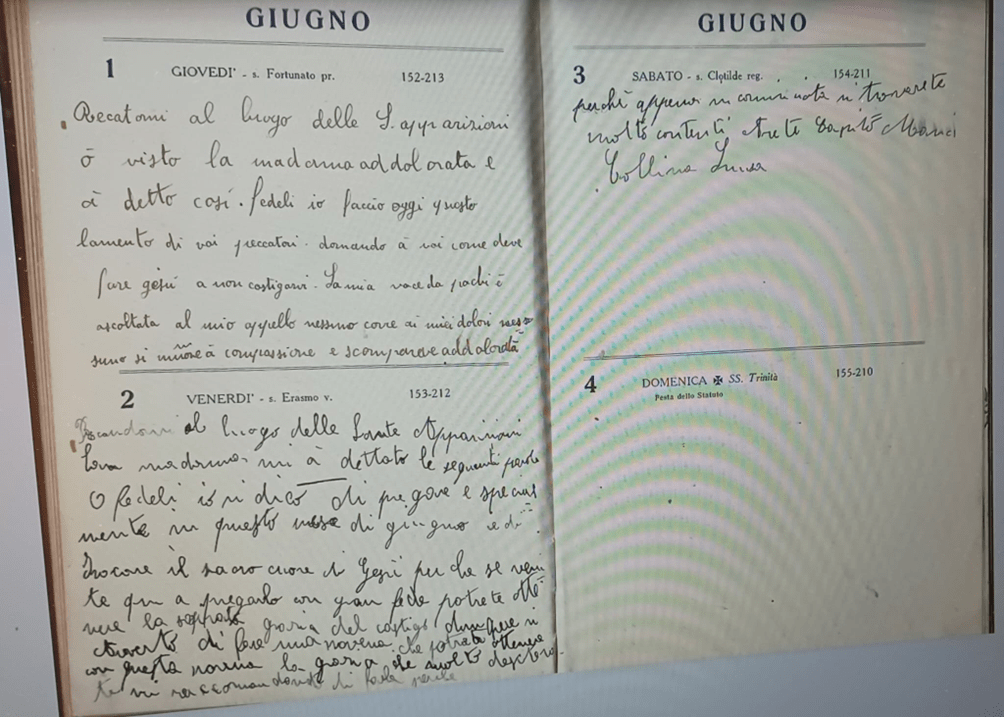 GIUGNO
1 GIOVEDI' - s. Fortunato pr. 152-213
Recatomi al luogo delle S. apparizioni
ò visto la madonna addolorata e
à detto così. fedeli io faccio oggi questo
lamento di voi peccatori. domando à voi come deve
fare gesù a non castigarvi. La mia voce da pochi è
ascoltata al mio appello nessuno corre ai miei dolori nes=
suno si muove à compassione e scompareve addolorata
2 VENERDI' - s. Erasmo v. 153-212
Recandomi al luogo delle Sante Apparizioni
madonna mi à dettato le seguenti parole
O fedeli io vi dico di pregare e special
mente in questo mese di giugno e di
il sacro cuore di Gesù perche se veni
te qui a pregarlo con gran fede potrete otte
nere la grazia del castigo dunque vi
di fare una novena che potrete ottenere
con questa novena la grazia che molto
te vi di farla
GIUGNO
3 SABATO - s. Clotilde reg. 154-211
perchè appena vi troverete
molto contenti
Collina Luisa
4 DOMENICA ✠ SS. Trinità 155-210
Festa dello Statuto